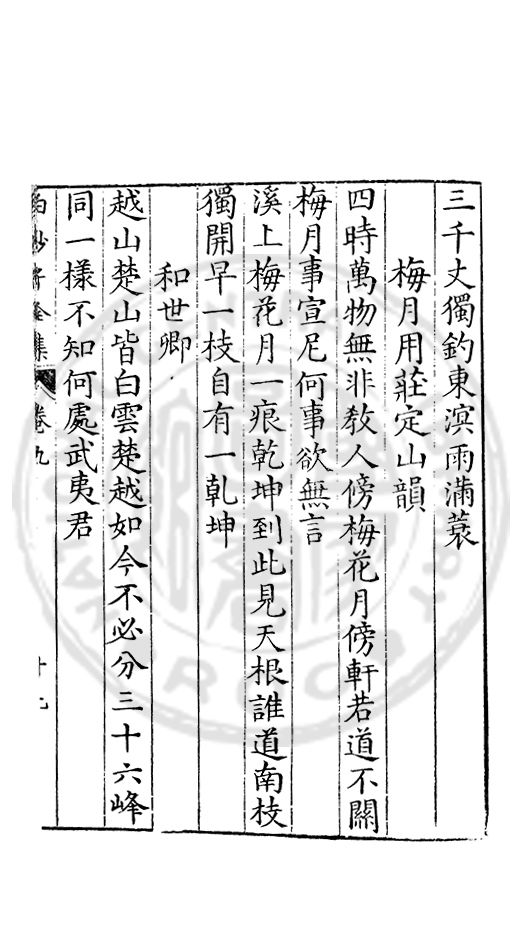 三千丈獨釣東溟雨滿蓑
梅月用莊定山韻
四時萬物無非敎人傍梅花月傍軒若道不關
梅月事宣尼何事欲無言
溪上梅花月一痕乾坤到此見天根誰道南枝
獨開早一枝自有一乾坤
和世卿
越山楚山皆白雲楚越如今不必分三十六峰
同一樣不知何處武夷君
集 卷九